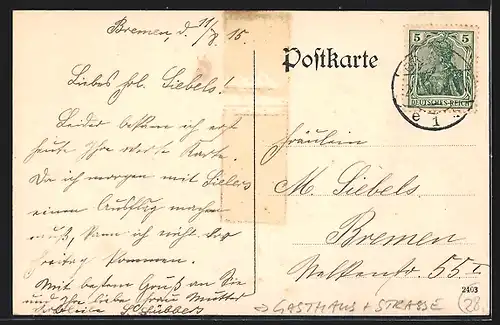 Bremen, d. 11/8 15.
Liebes frl. Siebels!
Leider bekam ich erst
heute Ihre werte Karte.
Da ich morgen mit Sielers
einen Ausflug machen
muß, kann ich nicht
Freitag kommen.
Mit bestem Gruß an Sie
und Ihre liebe Frau Mutter
Lübbers
Postkarte
5 5
DEUTSCHES REICH
e 1
Fräulein
M. Siebels
Bremen
Nelkenstr. 55 I
2403
→ GASTHAUS + STRASSE
28